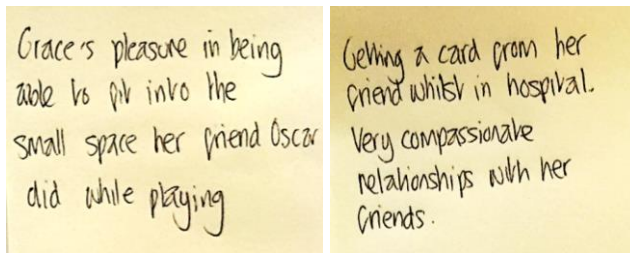 Grace's pleasure in being
able to fit into the
small space her friend Oscar
did while playing
Getting a card from her
friend whilst in hospital.
Very compassionate
relationships with her
friends.